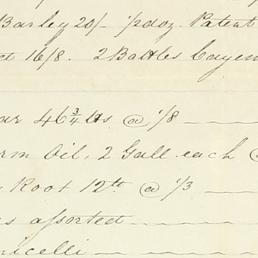 Barley 20/- pdoz. Patent
16/8. 2 Bottles Cayen
ar 46¾ lbs @ 1/8
rm Oil, 2 Gall. each @
Root 12lb @ 1/3
s assorted
micelli